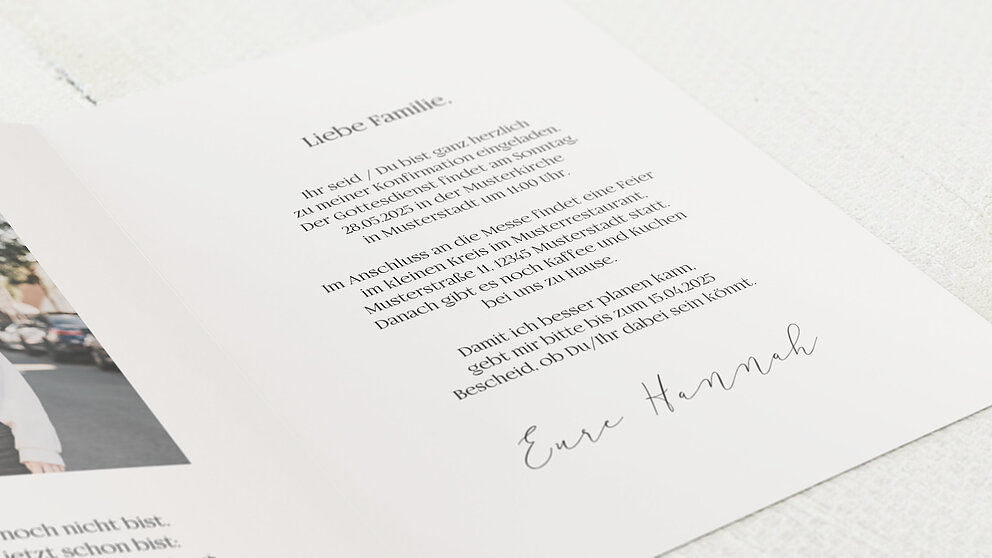 noch nicht bist.
jetzt schon bist:
Liebe Familie,
Ihr seid / Du bist ganz herzlich
zu meiner Konfirmation eingeladen.
Der Gottesdienst findet am Sonntag,
28.05.2025 in der Musterkirche
in Musterstadt um 11:00 Uhr.
Im Anschluss an die Messe findet eine Feier
im kleinen Kreis im Musterrestaurant,
Musterstraße 11, 12345 Musterstadt statt.
Danach gibt es noch Kaffee und Kuchen
bei uns zu Hause.
Damit ich besser planen kann,
gebt mir bitte bis zum 15.04.2025
Bescheid, ob Du/Ihr dabei sein könnt.
Eure Hannah